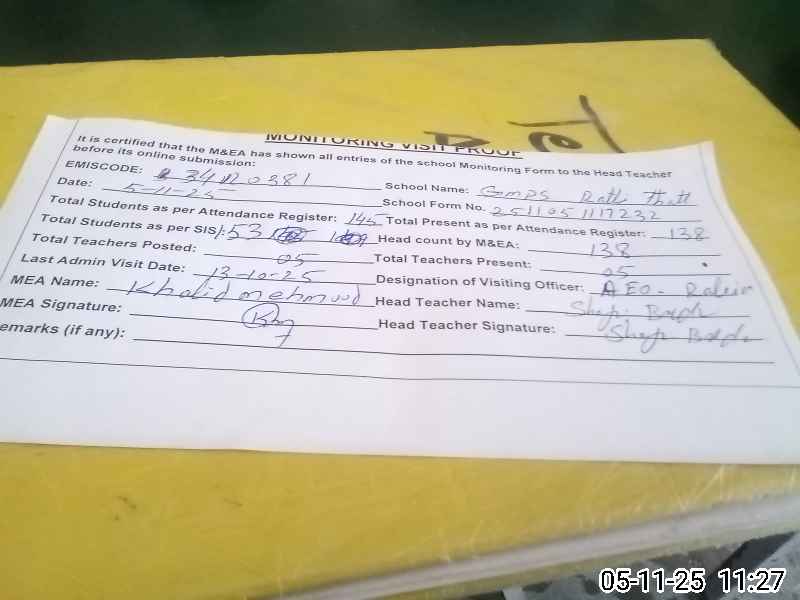 MONITORING VISIT PROOF
It is certified that the M&EA has shown all entries of the school Monitoring Form to the Head Teacher
before its online submission:
EMISCODE: 34120381 School Name: GMPS Ratti Thatt
Date: 5-11-25 School Form No. 2511051117232
Total Students as per Attendance Register: 145 Total Present as per Attendance Register: 138
Total Students as per SIS/: 53 Head count by M&EA: 138
Total Teachers Posted: 05 Total Teachers Present: 05
Last Admin Visit Date: 13-10-25 Designation of Visiting Officer: AEO-
MEA Name: Khalid mehmood Head Teacher Name:
MEA Signature: Head Teacher Signature:
emarks (if any):
05-11-25 11:27